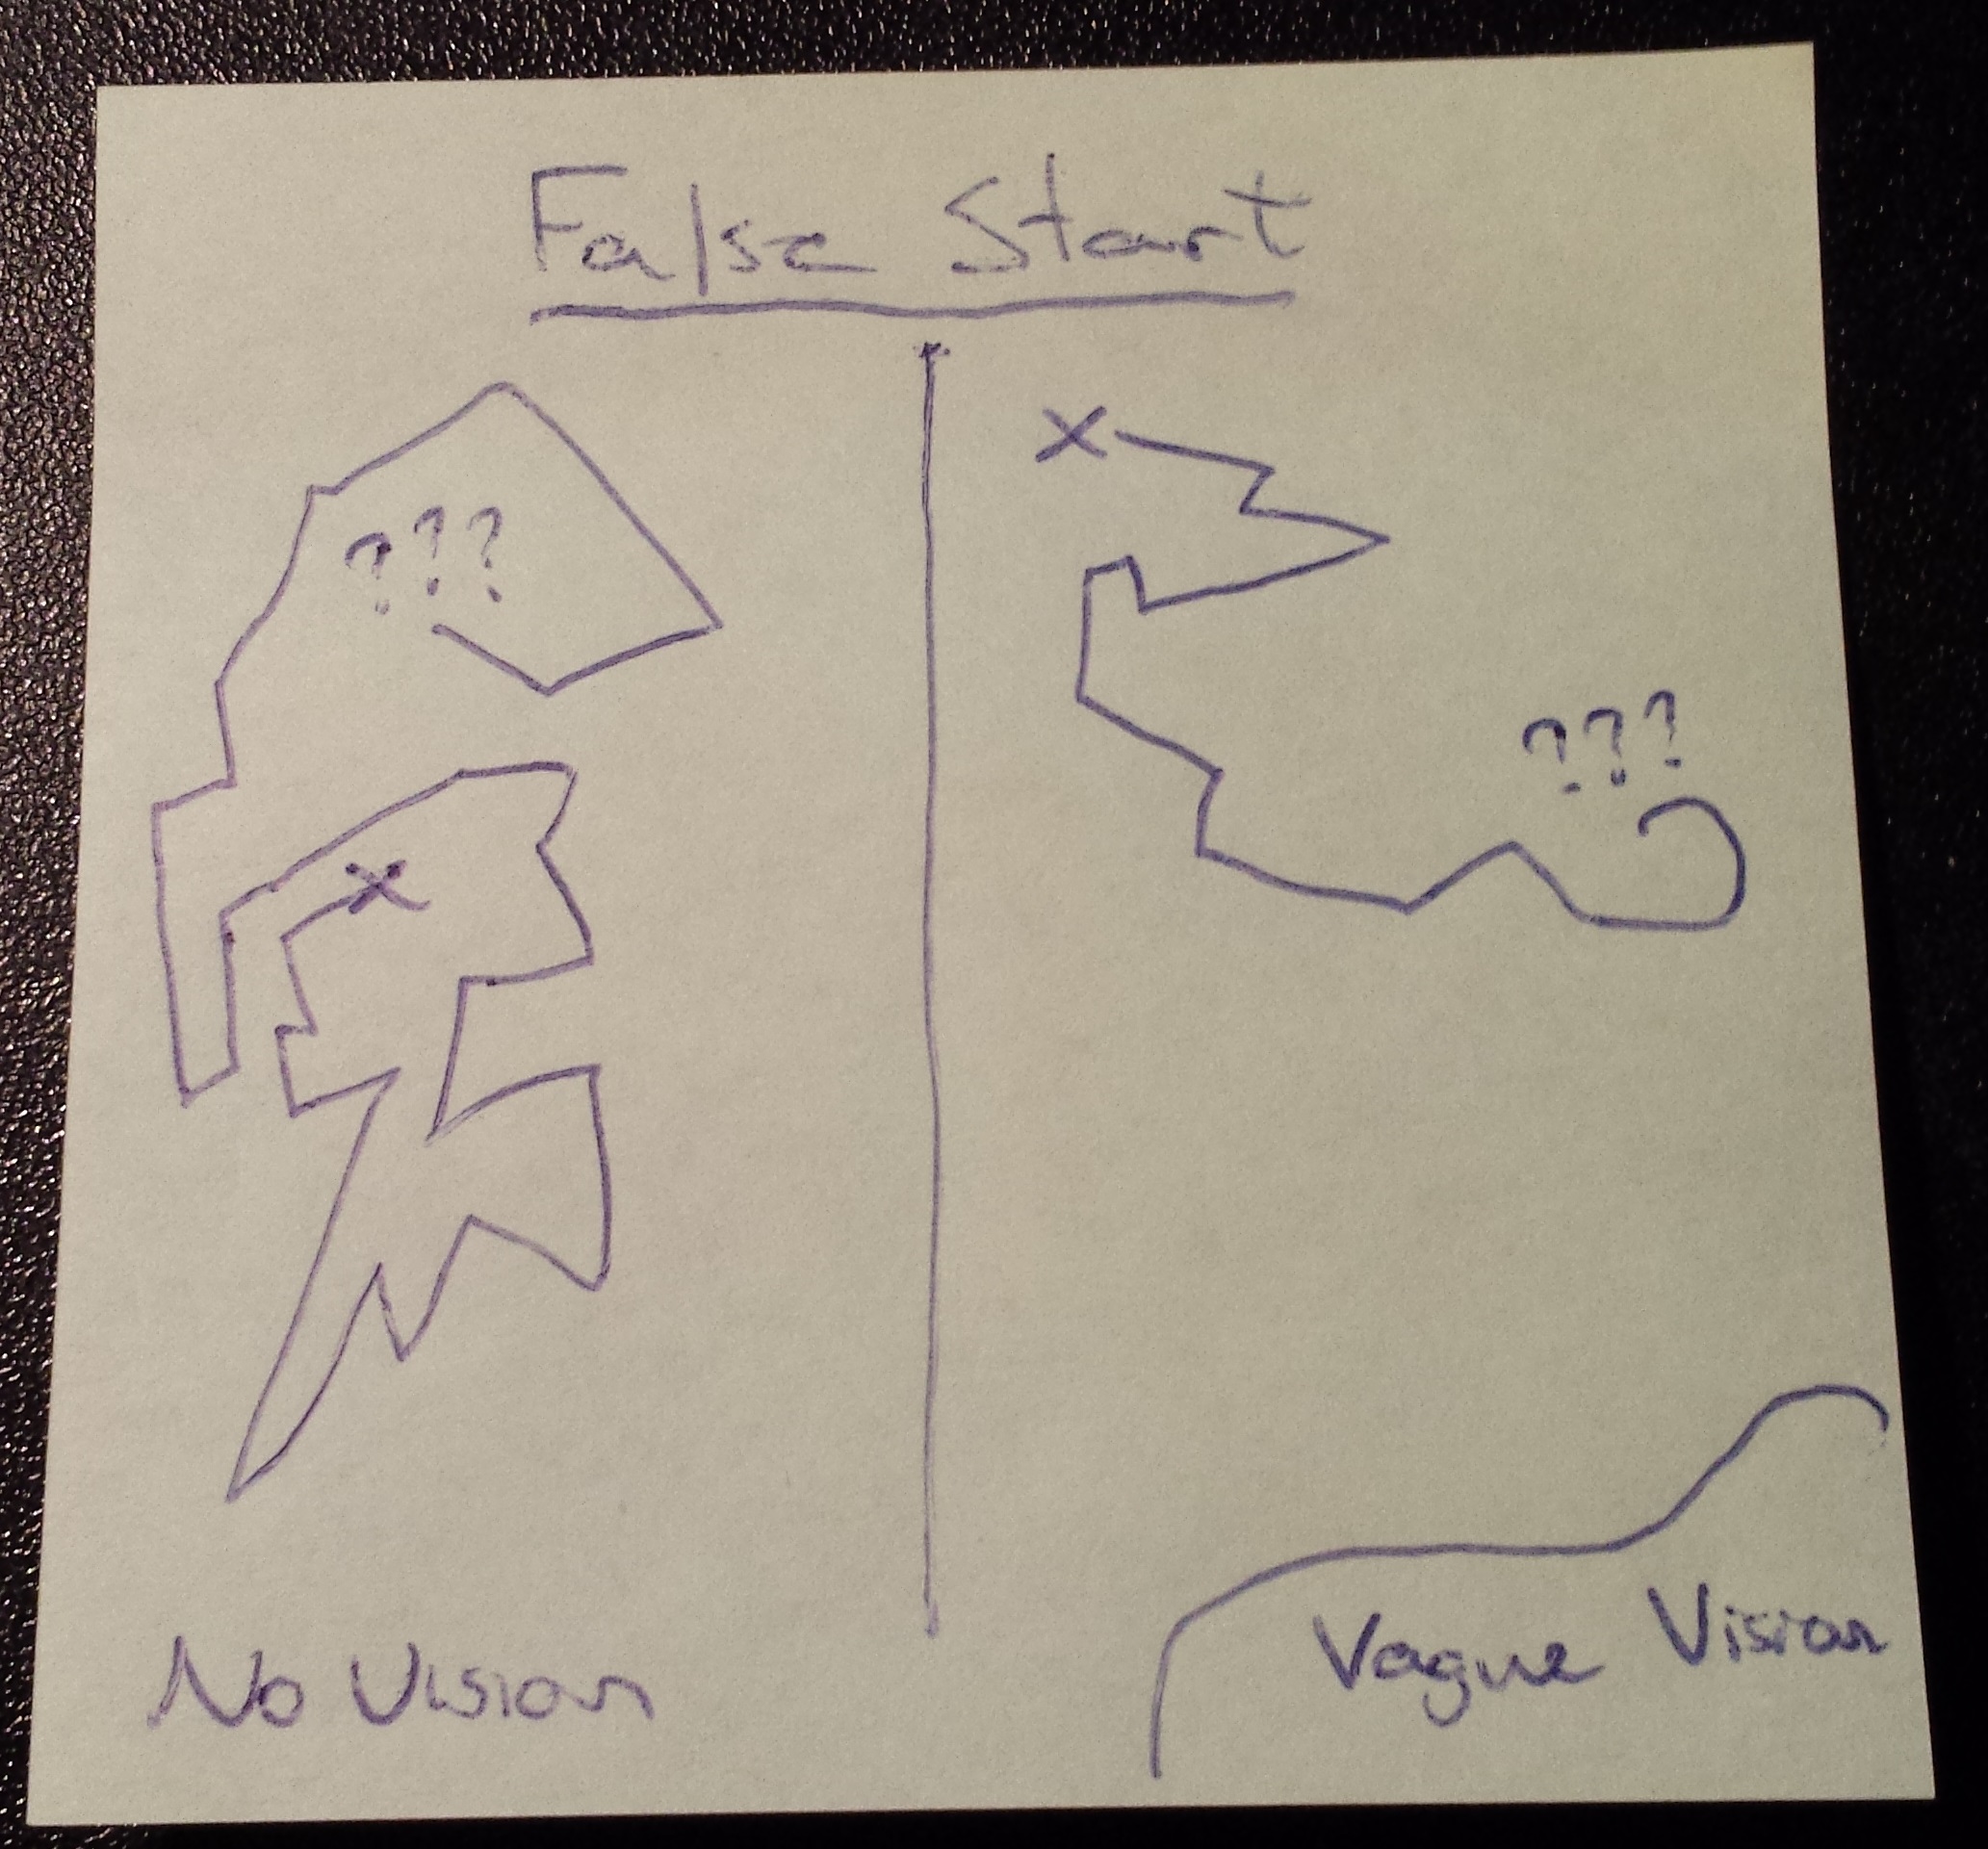 False Start
x
???
???
x
No Vision
Vague Vision